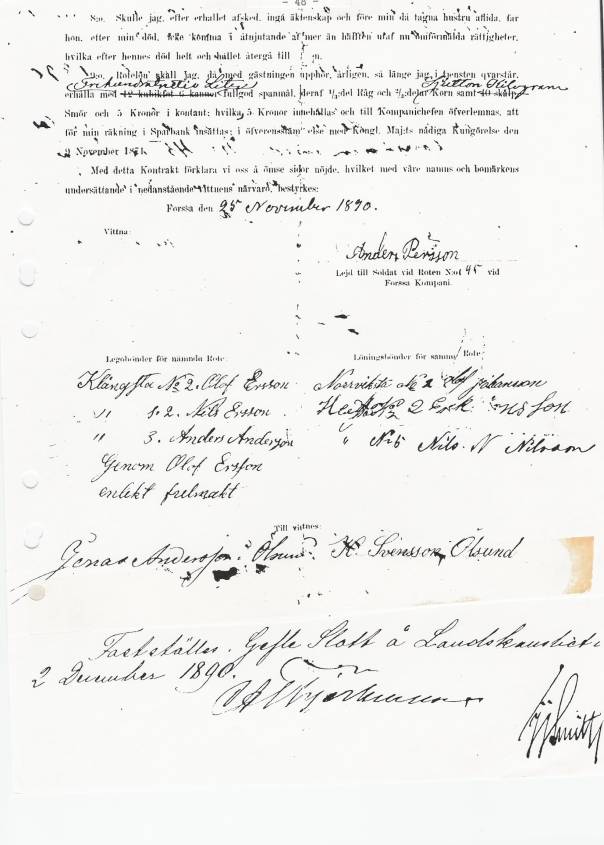 — 48 —
8:o. Skulle jag, efter erhållet afsked, ingå äktenskap och före min då tagna hustru aflida, får
hon, efter min död, icke komma i åtnjutande af mer än hälften utaf nu omförmälda rättigheter,
hvilka efter hennes död helt och hållet återgå till
9:o. Rotelön skall jag, då med gästningen upphör, årligen, så länge jag i tjensten qvarstår,
Liter
Kilogram
erhålla med 12 kubikfot 6 kannor fullgod spanmål, deraf 1/3:del Råg och 2/3:delar Korn samt 40 skålp.
Smör och 5 Kronor i kontant; hvilka 5 Kronor innehållas och till Kompanichefen öfverlemnas, att
för min räkning i Sparbank insättas; i öfverensstämmelse med Kongl. Maj:ts nådiga Kungörelse den
November 1871.
Med detta Kontrakt förklara vi oss å ömse sidor nöjde, hvilket med våre namns och bomärkens
undersättande i nedanstående vittnens närvaro, bestyrkes:
Forssa den 25 November 1890.
Vittna:
Anders Persson
Lejd till Soldat vid Roten N:o 45 vid
Forssa Kompani.
Legobönder för nämnda Rote:
Löningsbönder för samma Rote:
Klångsta No 2. Olof Ersson
Norrviksta No 2 Olof Johansson
" 1. 2. Nils Ersson
No 2 Erik
" 3. Anders Anderson
" No 5 Nils N Nilsson
Genom Olof Ersson
enlikt fulmakt
Till vittnes:
Jonas Andersson Ölsund. K. Svensson Ölsund
Fastställes. Gefle Slott å Landskansliet
2 December 1890.